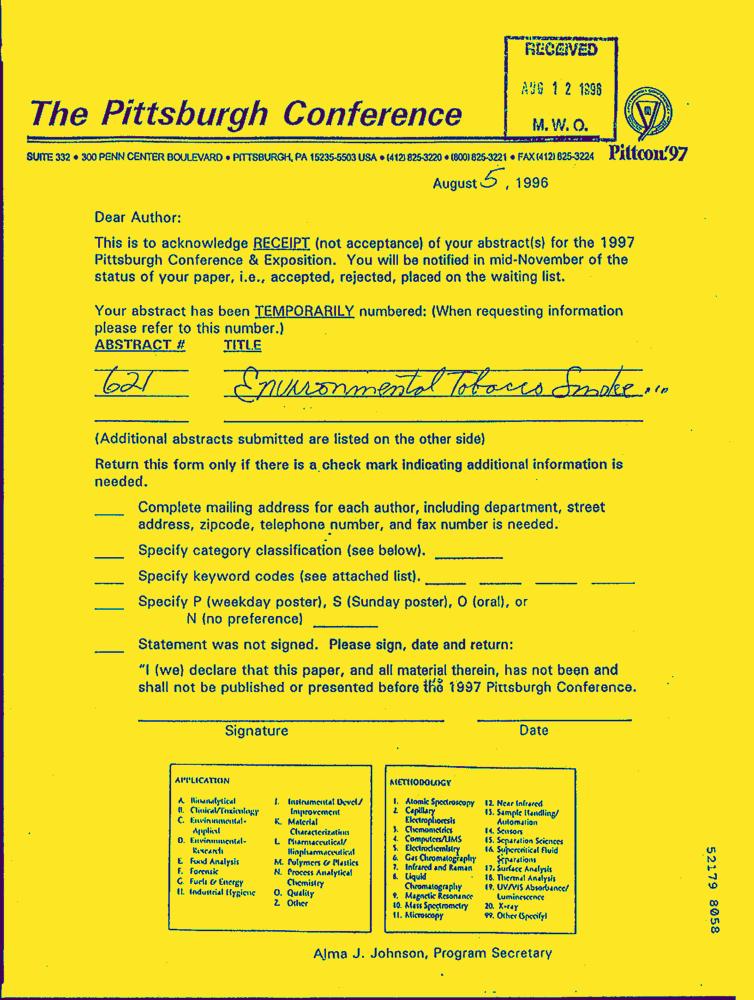 RECEIVED
AUG 12 1996
M.W.O.
The Pittsburgh Conference
SUITE 332 • 300 PENN CENTER BOULEVARD • PITTSBURGH, PA 15235-5503 USA • (412) 825-3220 • (800) 825-3221 • FAX (412) 825-3224
Pittcon'97
August 5, 1996
Dear Author:
This is to acknowledge RECEIPT (not acceptance) of your abstract(s) for the 1997
Pittsburgh Conference & Exposition. You will be notified in mid-November of the
status of your paper, i.e., accepted, rejected, placed on the waiting list.
Your abstract has been TEMPORARILY numbered: (When requesting information
please refer to this number.)
ABSTRACT # TITLE
621 Environmental Tobacco Smoke...
(Additional abstracts submitted are listed on the other side)
Return this form only if there is a check mark indicating additional information is
needed.
Complete mailing address for each author, including department, street
address, zipcode, telephone number, and fax number is needed.
Specify category classification (see below).
Specify keyword codes (see attached list).
Specify P (weekday poster), S (Sunday poster), O (oral), or
N (no preference)
Statement was not signed. Please sign, date and return:
"I (we) declare that this paper, and all material therein, has not been and
shall not be published or presented before the 1997 Pittsburgh Conference.
Signature Date
APPLICATION
A. Bioanalytical
B. Clinical/Toxicology
C. Environmental-
Applied
D. Environmental-
Research
E. Food Analysis
F. Forensic
G. Fuels & Energy
H. Industrial Hygiene
J. Instrumental Devel/
Improvement
K. Material
Characterization
L. Pharmaceutical/
Biopharmaceutical
M. Polymers & Plastics
N. Process Analytical
Chemistry
O. Quality
Z. Other
METHODOLOGY
1. Atomic Spectroscopy
2. Capillary
Electrophoresis
3. Chemometrics
4. Computers/LIMS
5. Electrochemistry
6. Gas Chromatography
7. Infrared and Raman
8. Liquid
Chromatography
9. Magnetic Resonance
10. Mass Spectrometry
11. Microscopy
12. Near Infrared
13. Sample Handling/
Automation
14. Sensors
15. Separation Sciences
16. Supercritical Fluid
Separations
17. Surface Analysis
18. Thermal Analysis
19. UV/VIS Absorbance/
Luminescence
20. X-ray
99. Other (Specify)
Alma J. Johnson, Program Secretary
52179 8058